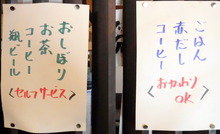 おしぼり
お茶
コーヒー
瓶ビール
<セルフサービス>
ごはん
赤だし
コーヒー
おかわり
OK